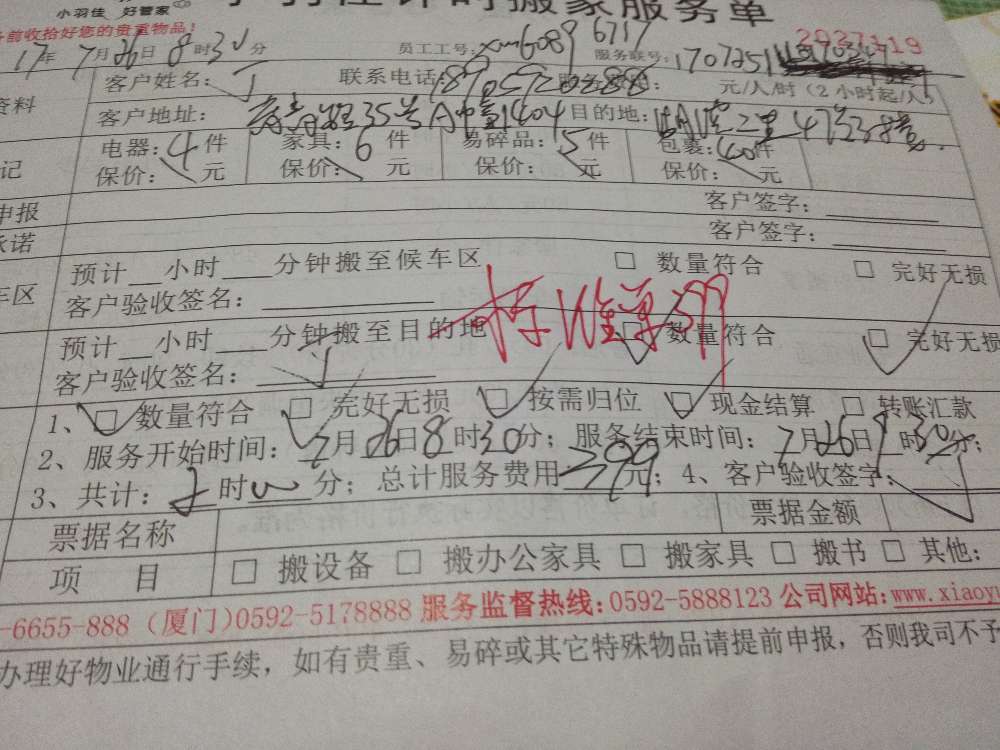 小羽佳 好管家
计时搬家服务单
前收拾好您的贵重物品!
17年7月26日8时30分 员工工号: xm6089 6717 服务联号: 1707251
2027119
资料 客户姓名: 丁 联系电话: 元/人/时(2小时起/人)
客户地址: 35号 1404 目的地: 二里47号
记 电器: 4件 家具: 6件 易碎品: 5件 包裹: 40件
保价: 元 保价: 元 保价: 元 保价: 元
申报 客户签字:
承诺 客户签字:
车区 预计__小时____分钟搬至候车区 □ 数量符合 □ 完好无损
客户验收签名:
标准单 399
预计__小时____分钟搬至目的地 □ 数量符合 □ 完好无损
客户验收签名: 丁
1、□ 数量符合 □ 完好无损 □ 按需归位 □ 现金结算 □ 转账汇款
2、服务开始时间: 7月26日8时30分; 服务结束时间: 7月26日 时30分;
3、共计: 2时 分; 总计服务费用399元; 4、客户验收签字: 丁
票据名称 票据金额
项 目 □ 搬设备 □ 搬办公家具 □ 搬家具 □ 搬书 □ 其他:
-6655-888 (厦门)0592-5178888 服务监督热线:0592-5888123 公司网站:www.xiaoyu
办理好物业通行手续,如有贵重、易碎或其它特殊物品请提前申报,否则我司不予